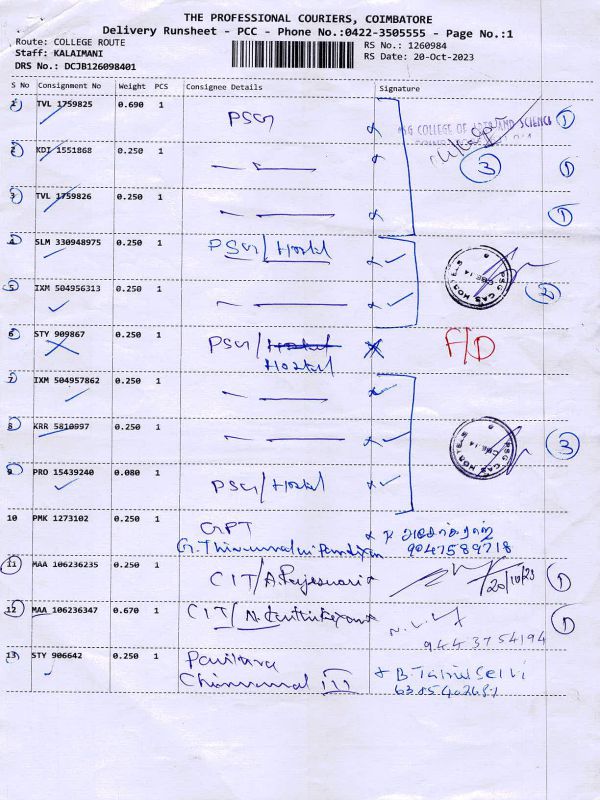 THE PROFESSIONAL COURIERS, COIMBATORE
Delivery Runsheet - PCC - Phone No.:0422-3505555 - Page No.:1
Route: COLLEGE ROUTE
RS No.: 1260984
Staff: KALAIMANI
RS Date: 20-Oct-2023
DRS No.: DCJB126098401
S No Consignment No Weight PCS Consignee Details Signature
1 TVL 1759825 0.690 1 PSG
PSG COLLEGE OF ARTS AND SCIENCE 1
2 KDI 1551868 0.250 1 3 1
3 TVL 1759826 0.250 1 1
4 SLM 330948975 0.250 1 PSG/Hostel
PSG CAS HOSTELS CBE-14
5 IXM 504956313 0.250 1 2
6 STY 909867 0.250 1 PSG/Hostel F/D
Hostel
7 IXM 504957862 0.250 1
8 KRR 5810997 0.250 1 3
PSG CAS HOSTELS CBE-14
9 PRO 15439240 0.080 1 PSG/Hostel
10 PMK 1273102 0.250 1 GPT
9047589718
11 MAA 106236235 0.250 1 CIT/A Rajeswari 20/10/23 1
12 MAA 106236347 0.670 1 CIT/N. 1
9443754194
13 STY 906642 0.250 1 III